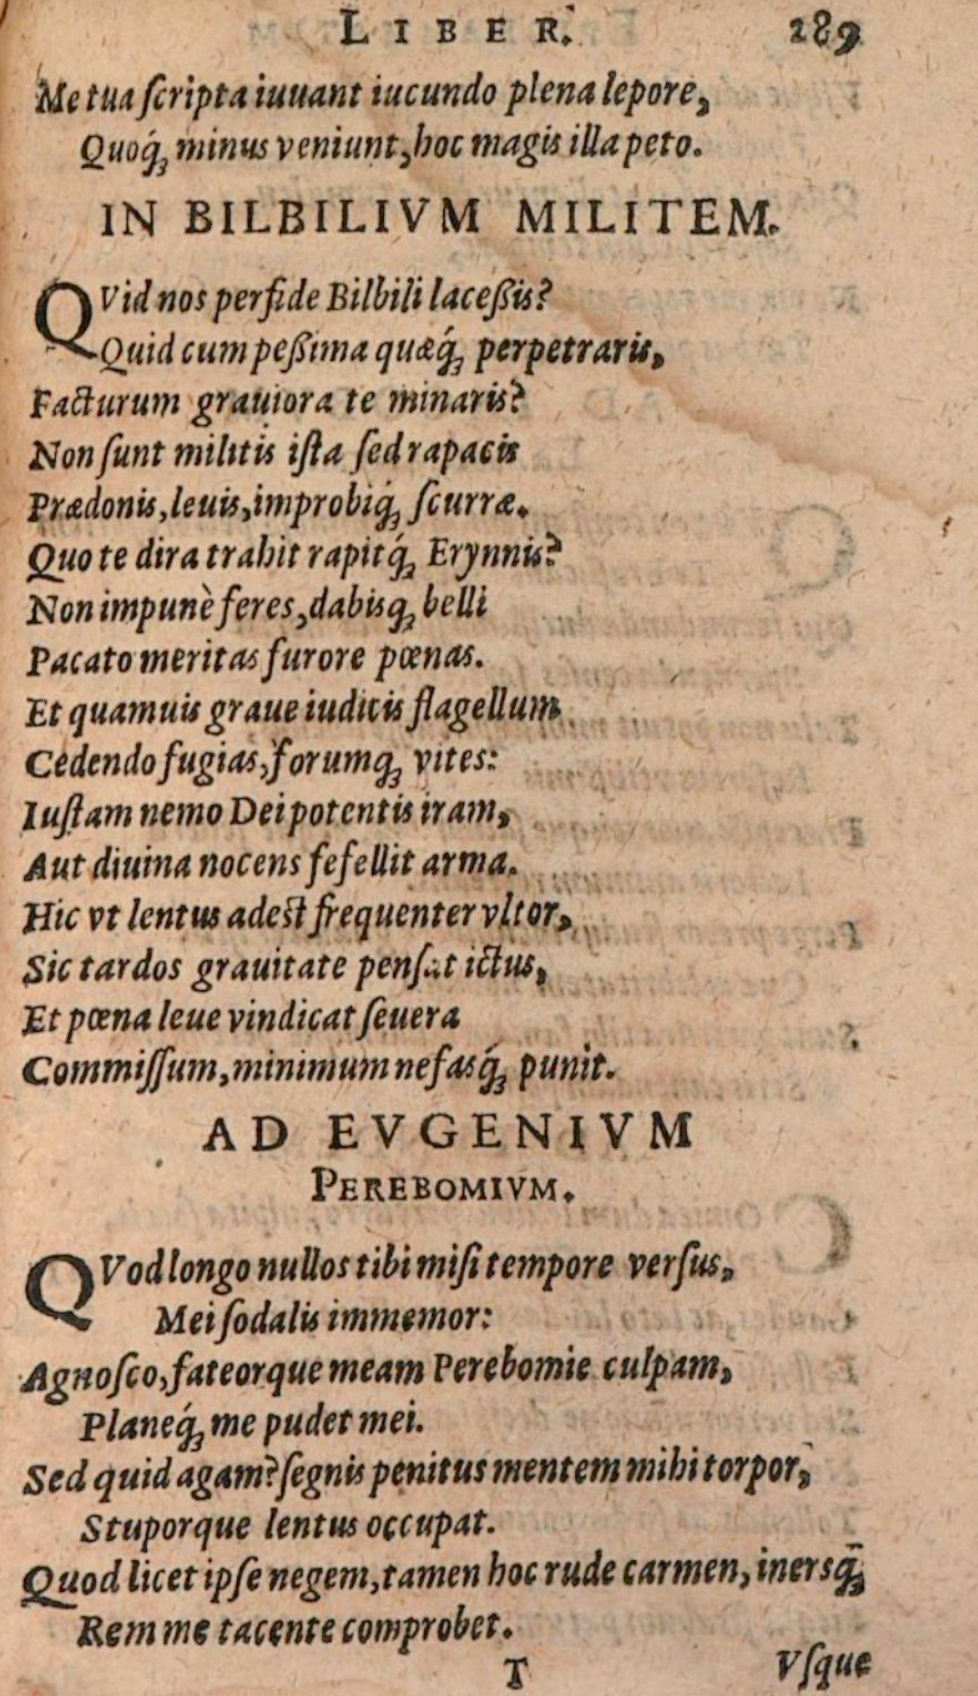 LIBER. 289
Me tua ſcripta iuuant iucundo plena lepore,
Quoq́ꝫ minus veniunt, hoc magis illa peto.
IN BILBILIVM MILITEM.
QVid nos perfide Bilbili laceßis?
Quid cum peßima quæq́ꝫ perpetraris,
Facturum grauiora te minaris?
Non ſunt militis iſta ſed rapacis
Prædonis, leuis, improbiq́ꝫ ſcurræ.
Quo te dira trahit rapitq́ꝫ Erynnis?
Non impunè feres, dabisqꝫ belli
Pacato meritas furore pœnas.
Et quamuis graue iudicis flagellum
Cedendo fugias, forumqꝫ vites:
Iuſtam nemo Dei potentis iram,
Aut diuina nocens fefellit arma.
Hic vt lentus adest frequenter vltor,
Sic tardos grauitate penſat ictus,
Et pœna leue vindicat ſeuera
Commiſſum, minimum nefasq́ꝫ punit.
AD EVGENIVM
PEREBOMIVM.
QVod longo nullos tibi miſi tempore verſus,
Mei ſodalis immemor:
Agnoſco, fateorque meam Perebomie culpam,
Planeq́ꝫ me pudet mei.
Sed quid agam? ſegnis penitus mentem mihi torpor,
Stuporque lentus occupat.
Quod licet ipſe negem, tamen hoc rude carmen, inersq̄ꝫ
Rem me tacente comprobet.
T Vſque